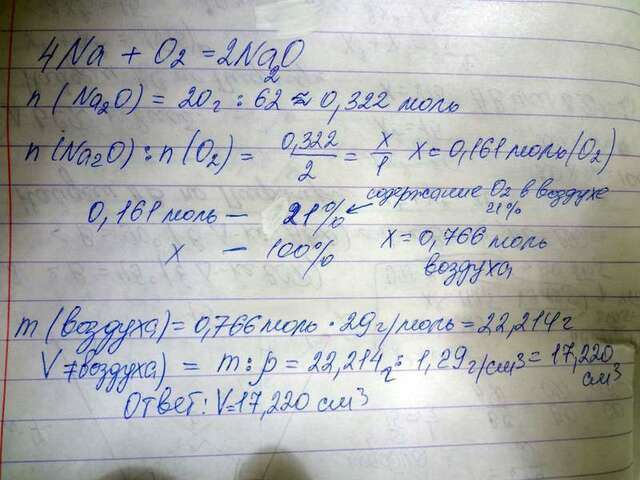 4Na + O₂ = 2Na₂O
n(Na₂O) = 20г : 62 ≈ 0,322 моль
n(Na₂O) : n(O₂) = 0,322/2 = x/1 x = 0,161 моль (O₂)
0,161 моль — 21% ← содержание O₂ в воздухе 21%
x — 100% x = 0,766 моль воздуха
m (воздуха) = 0,766 моль · 29 г/моль = 22,214 г
V (воздуха) = m : ρ = 22,214 г : 1,29 г/см³ = 17,220 см³
Ответ: V = 17,220 см³